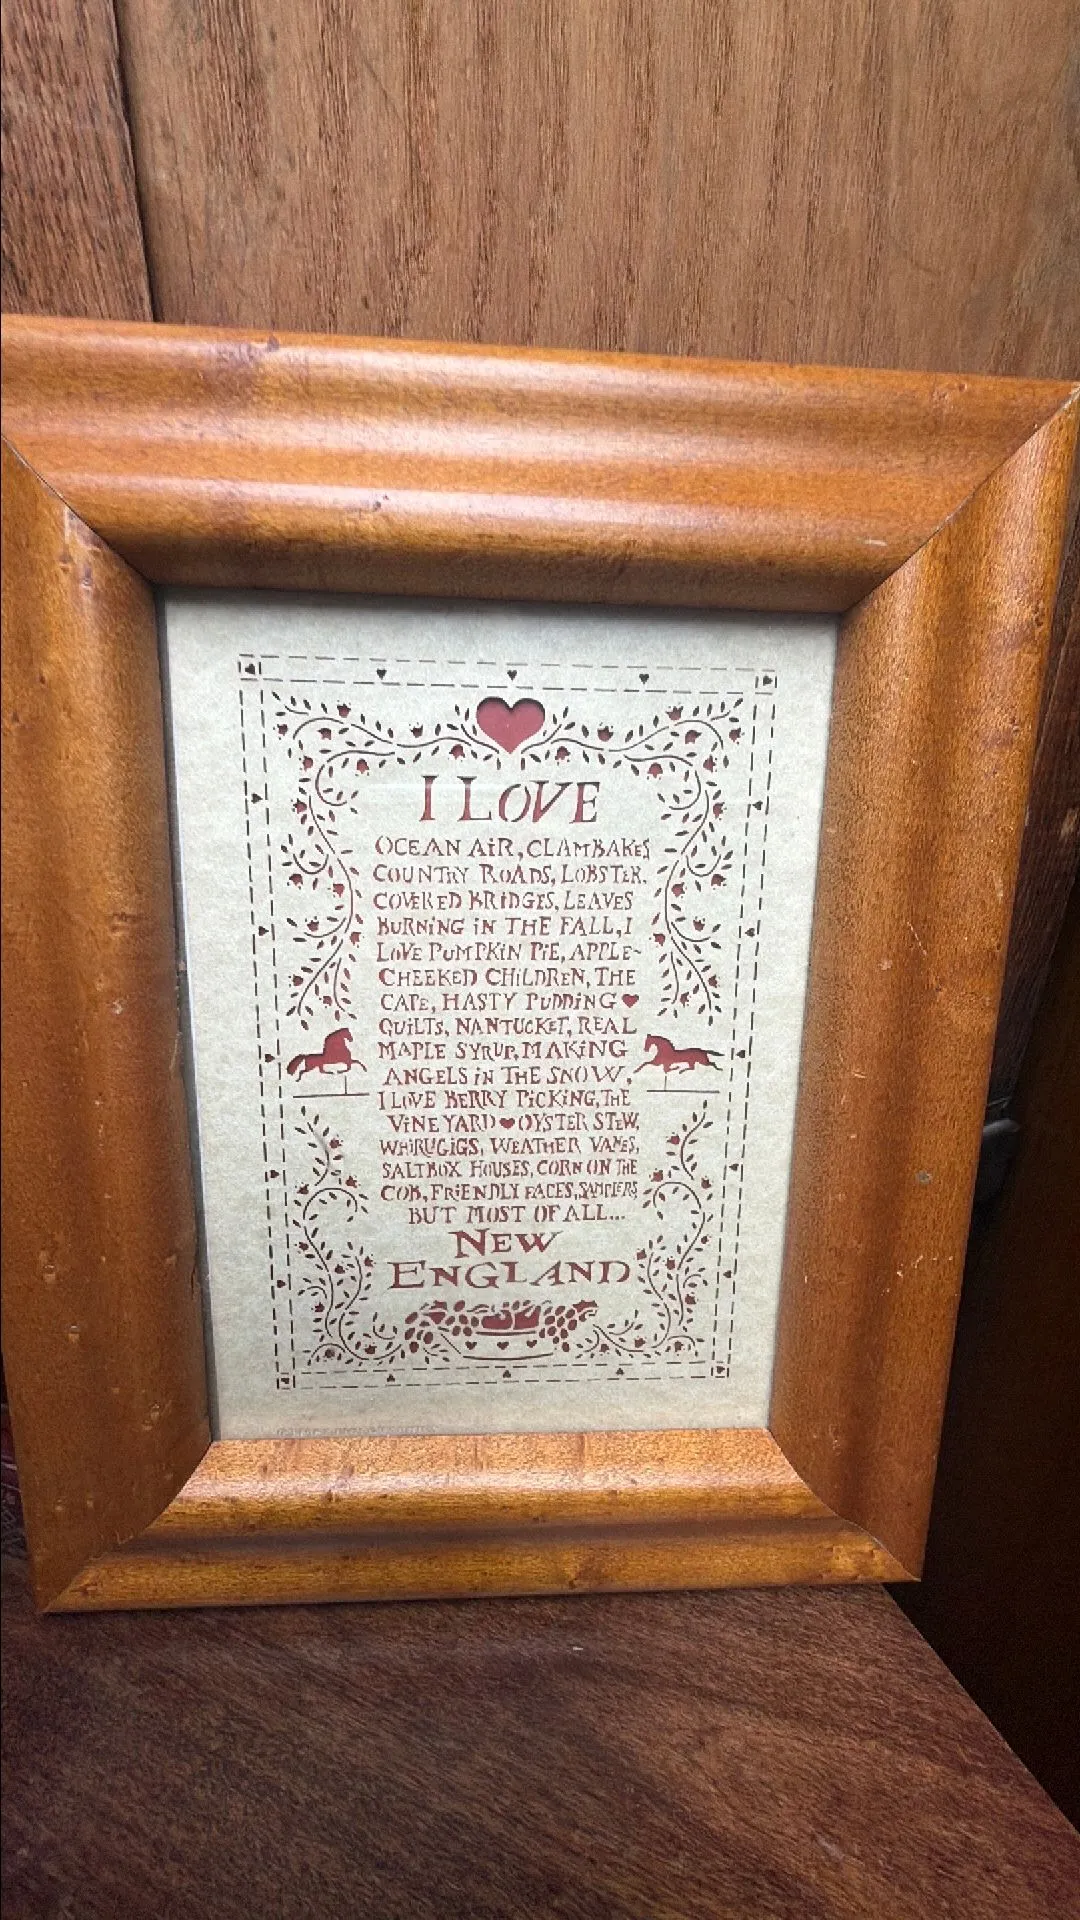 I LOVE
OCEAN AIR, CLAMBAKES
COUNTRY ROADS, LOBSTER,
COVERED BRIDGES, LEAVES
BURNING IN THE FALL, I
LOVE PUMPKIN PIE, APPLE-
CHEEKED CHILDREN, THE
CAPE, HASTY PUDDING ♥
QUILTS, NANTUCKET, REAL
MAPLE SYRUP, MAKING
ANGELS IN THE SNOW,
I LOVE BERRY PICKING, THE
VINEYARD ♥ OYSTER STEW,
WHIRLIGIGS, WEATHER VANES,
SALTBOX HOUSES, CORN ON THE
COB, FRIENDLY FACES, SAMPLERS
BUT MOST OF ALL...
NEW
ENGLAND